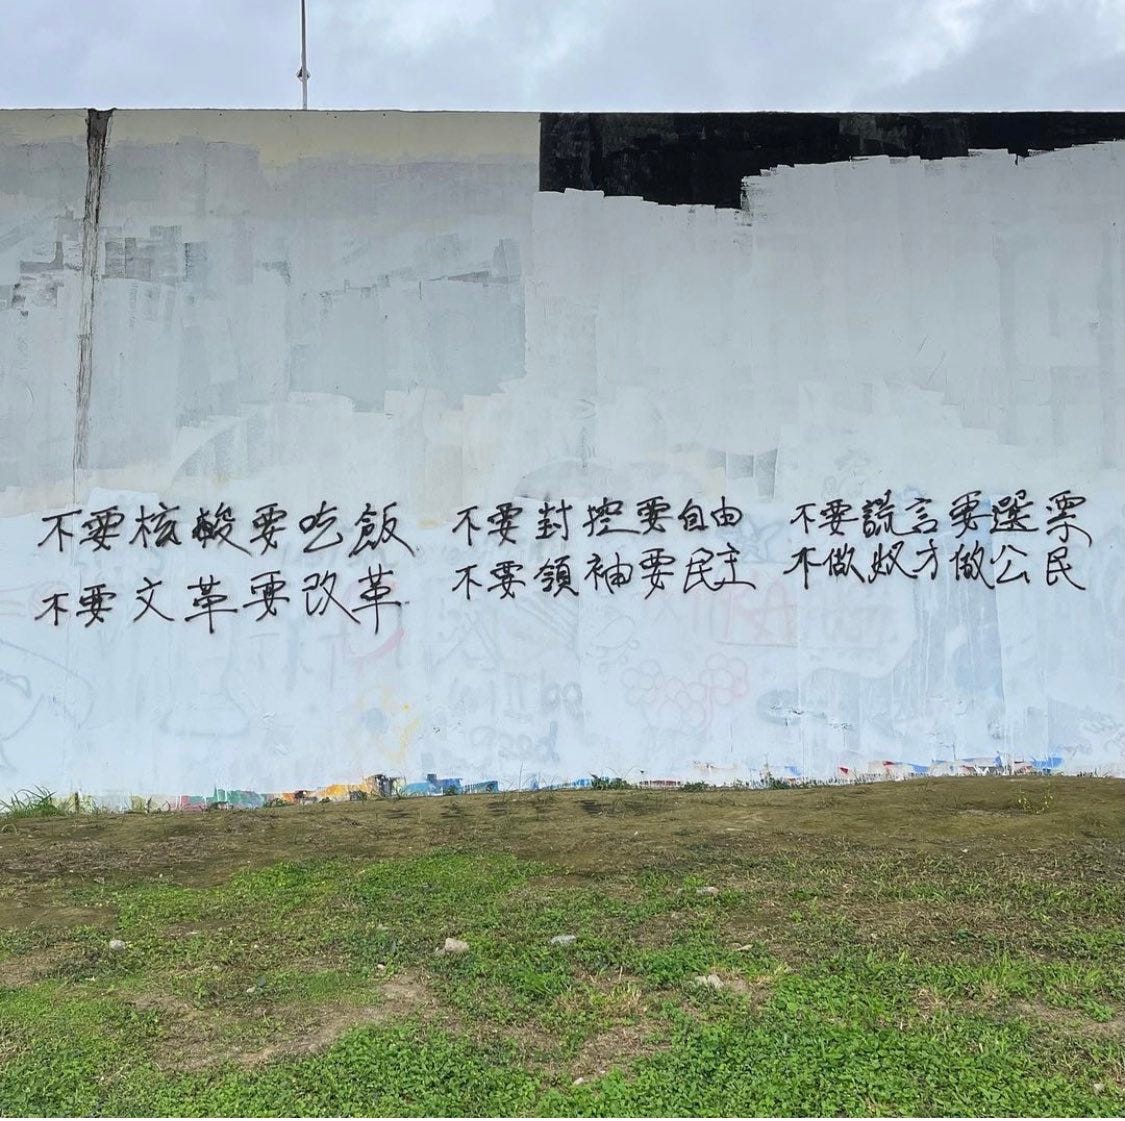 不要核酸要吃飯
不要文革要改革
不要封控要自由
不要領袖要民主
不要謊言要選票
不做奴才做公民